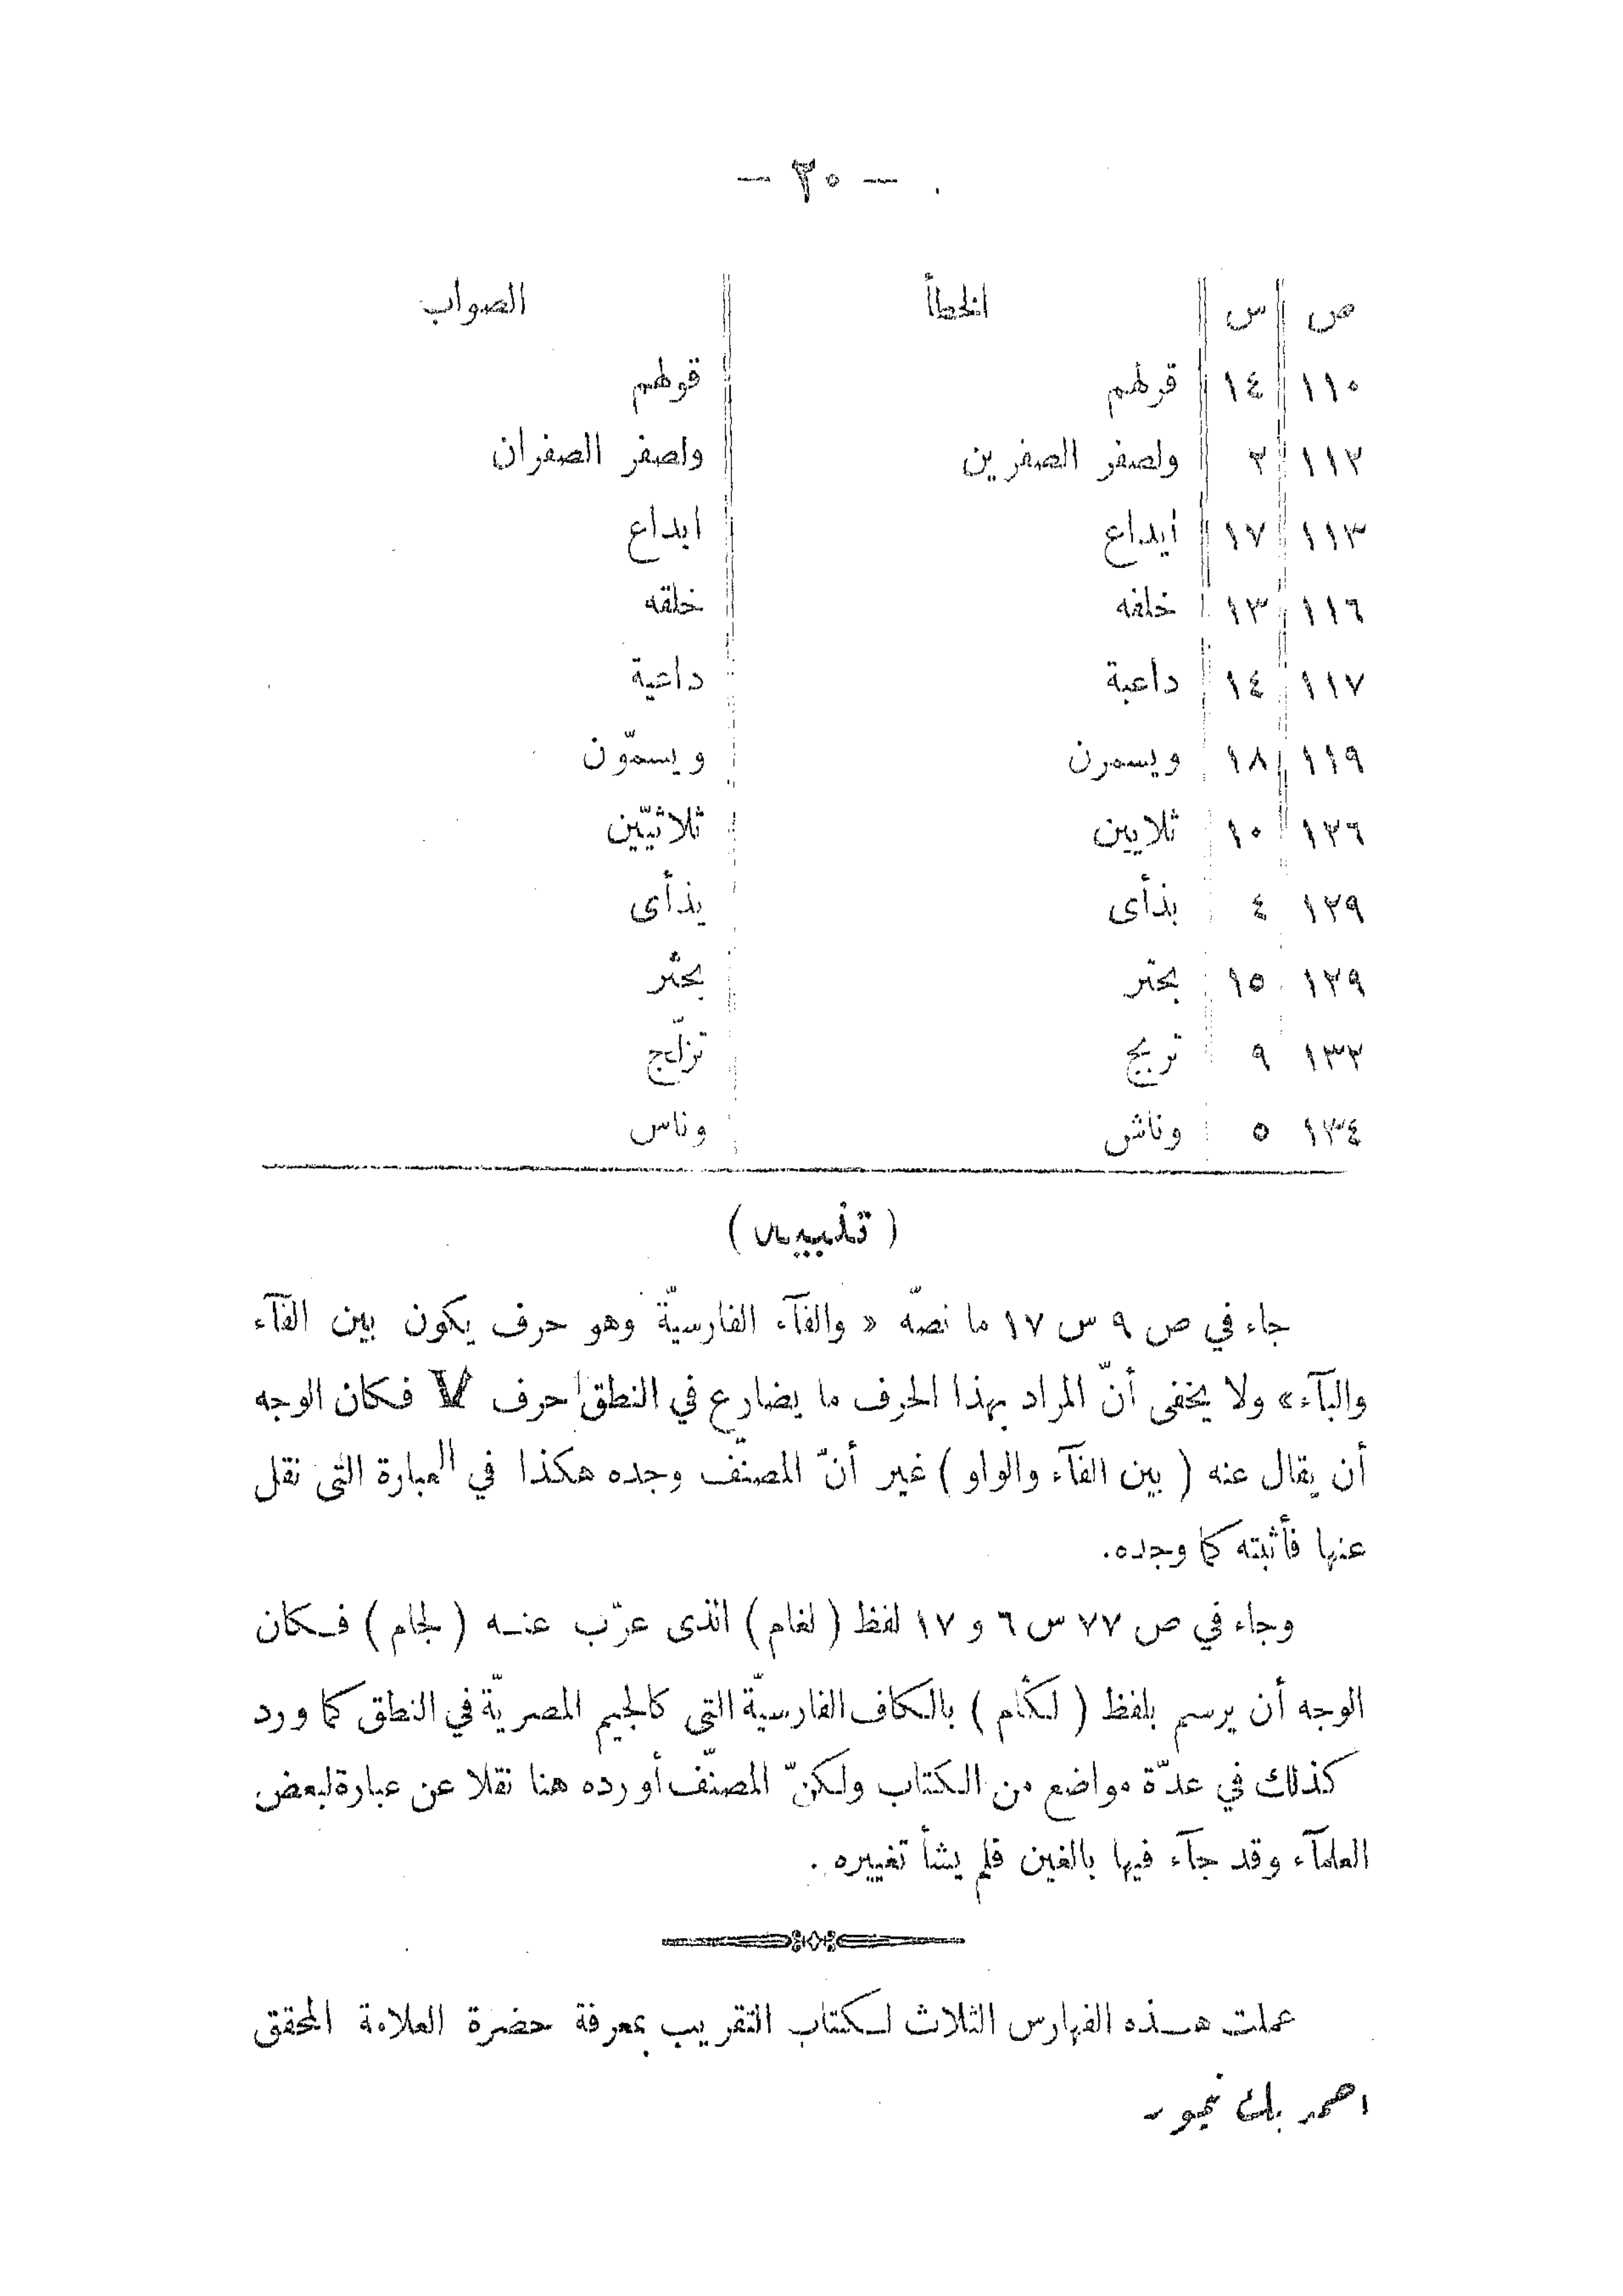 — ٣٠ —
ص س الخطأ الصواب
١١٠ ١٤ قرلهم قولهم
١١٢ ٢ ولصفر الصفرين ولصفر الصفران
١١٣ ١٧ أيداع ابداع
١١٦ ١٣ خلفه خلقه
١١٧ ١٤ داعبة داعية
١١٩ ١٨ ويسمرن ويسمّون
١٢٦ ١٠ ثلايين ثلاثيّين
١٢٩ ٤ بذأى يذأى
١٢٩ ١٥ بحتر بحثر
١٣٢ ٩ تربج تزلّج
١٣٤ ٥ وناش وناس
( تنبيه )
جاء في ص ٩ س ١٧ ما نصّه « والفآء الفارسيّة وهو حرف يكون بين الفآء
والبآء» ولا يخفى أنّ المراد بهذا الحرف ما يضارع في النطق حرف V فكان الوجه
أن يقال عنه ( بين الفآء والواو ) غير أنّ المصنّف وجده هكذا في العبارة التى نقل
عنها فأثبته كما وجده.
وجاء في ص ٧٧ س ٦ و ١٧ لفظ ( لغام ) الذى عرّب عنه ( لجام ) فكان
الوجه أن يرسم بلفظ ( لكام ) بالكاف الفارسيّة التى كالجيم المصريّة في النطق كما ورد
كذلك في عدّة مواضع من الكتاب ولكنّ المصنّف أورده هنا نقلا عن عبارة لبعض
العلمآء وقد جآء فيها بالغين فلم يشأ تغييره .
عملت هذه الفهارس الثلاث لكتاب التقريب بمعرفة حضرة العلامة المحقق
احمد بك تيمور